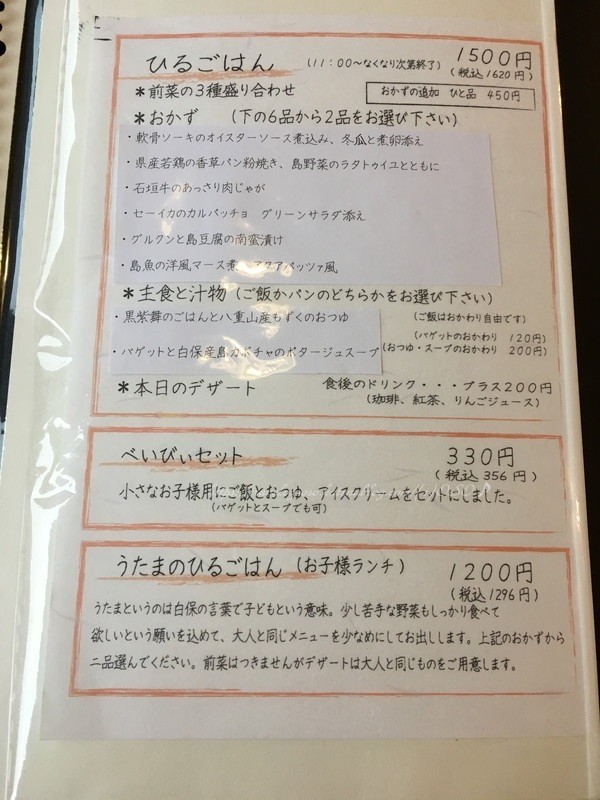 ひるごはん (11:00~なくなり次第終了) 1500円
(税込1620円)
＊前菜の3種盛り合わせ おかずの追加 ひと品 450円
＊おかず (下の6品から2品をお選び下さい)
・軟骨ソーキのオイスターソース煮込み、冬瓜と煮卵添え
・県産若鶏の香草パン粉焼き、島野菜のラタトゥイユとともに
・石垣牛のあっさり肉じゃが
・セーイカのカルパッチョ グリーンサラダ添え
・グルクンと島豆腐の南蛮漬け
・島魚の洋風マース煮 アクアパッツァ風
＊主食と汁物 (ご飯かパンのどちらかをお選び下さい)
・黒紫舞のごはんと八重山産もずくのおつゆ (ご飯はおかわり自由です)
(バゲットのおかわり 120円)
・バゲットと白保産島カボチャのポタージュスープ (おつゆ・スープのおかわり 200円)
＊本日のデザート 食後のドリンク・・・プラス200円
(珈琲、紅茶、りんごジュース)
べいびぃセット 330円
(税込356円)
小さなお子様用にご飯とおつゆ、アイスクリームをセットにしました。
(バゲットとスープでも可)
うたまのひるごはん (お子様ランチ) 1200円
(税込1296円)
うたまというのは白保の言葉で子どもという意味。少し苦手な野菜もしっかり食べて
欲しいという願いを込めて、大人と同じメニューを少なめにしてお出しします。上記のおかずから
二品選んでください。前菜はつきませんがデザートは大人と同じものをご用意します。